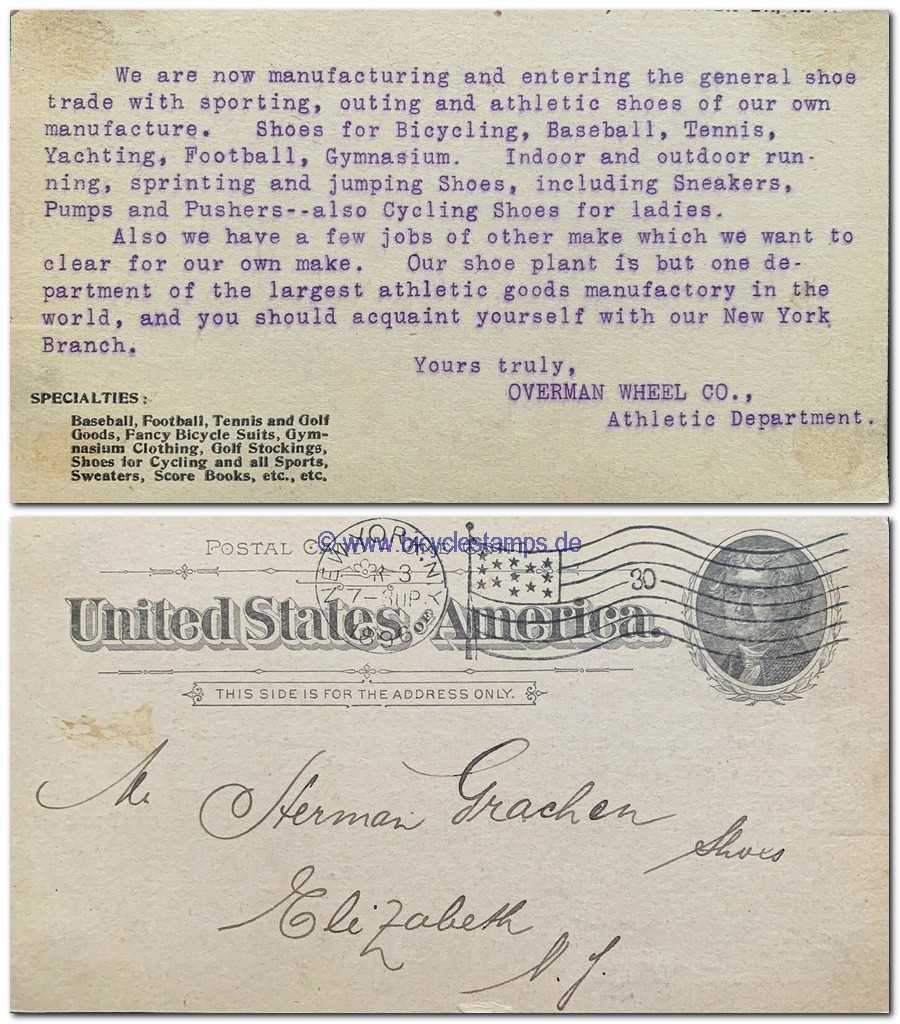 We are now manufacturing and entering the general shoe
trade with sporting, outing and athletic shoes of our own
manufacture. Shoes for Bicycling, Baseball, Tennis,
Yachting, Football, Gymnasium. Indoor and outdoor run-
ning, sprinting and jumping Shoes, including Sneakers,
Pumps and Pushers--also Cycling Shoes for ladies.
Also we have a few jobs of other make which we want to
clear for our own make. Our shoe plant is but one de-
partment of the largest athletic goods manufactory in the
world, and you should acquaint yourself with our New York
Branch.
Yours truly,
OVERMAN WHEEL CO.,
Athletic Department.
SPECIALTIES:
Baseball, Football, Tennis and Golf
Goods, Fancy Bicycle Suits, Gym-
nasium Clothing, Golf Stockings,
Shoes for Cycling and all Sports,
Sweaters, Score Books, etc., etc.
POSTAL CARD
© www.bicyclestamps.de
NEW YORK, N.Y.
3
7-
1896
30
United States of America.
THIS SIDE IS FOR THE ADDRESS ONLY.
Mr Herman Grachen
Shoes
Elizabeth
N. J.